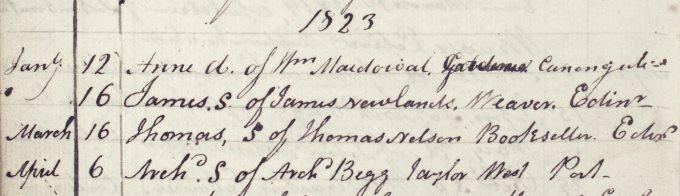 1823
Jany. 12 Anne d. of Wm Macdowal, Gardener Canongate
16 James. S of James Newlands, Weaver. Edinr
March 16 Thomas, S of Thomas Nelson Bookseller. Edinr
April 6 Archd. S of Archd Begg Taylor West Port-